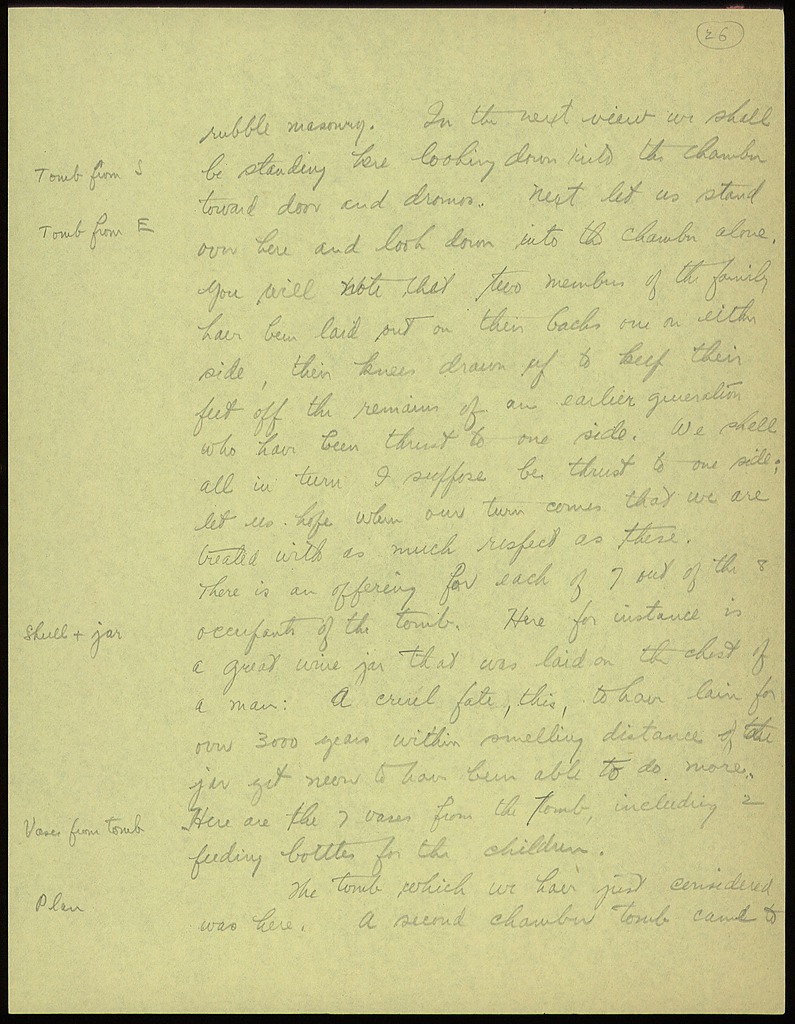 26
rubble masonry. In the next view we shall
Tomb from S
be standing here looking down into the chamber
toward door and dromos. Next let us stand
Tomb from E
over here and look down into the chamber alone.
You will note that two members of the family
have been laid out on their backs one on either
side, their knees drawn up to keep their
feet off the remains of an earlier generation
who have been thrust to one side. We shall
all in turn I suppose be thrust to one side;
let us hope when our turn comes that we are
treated with as much respect as these.
There is an offering for each of 7 out of the 8
Skull + jar
occupants of the tomb. Here for instance is
a great wine jar that was laid on the chest of
a man: A cruel fate, this, to have lain for
over 3000 years within smelling distance of the
jar yet never to have been able to do more.
Vases from tomb
Here are the 7 vases from the tomb, including 2
feeding bottles for the children.
The tomb which we have just considered
Plan
was here. A second chamber tomb came to